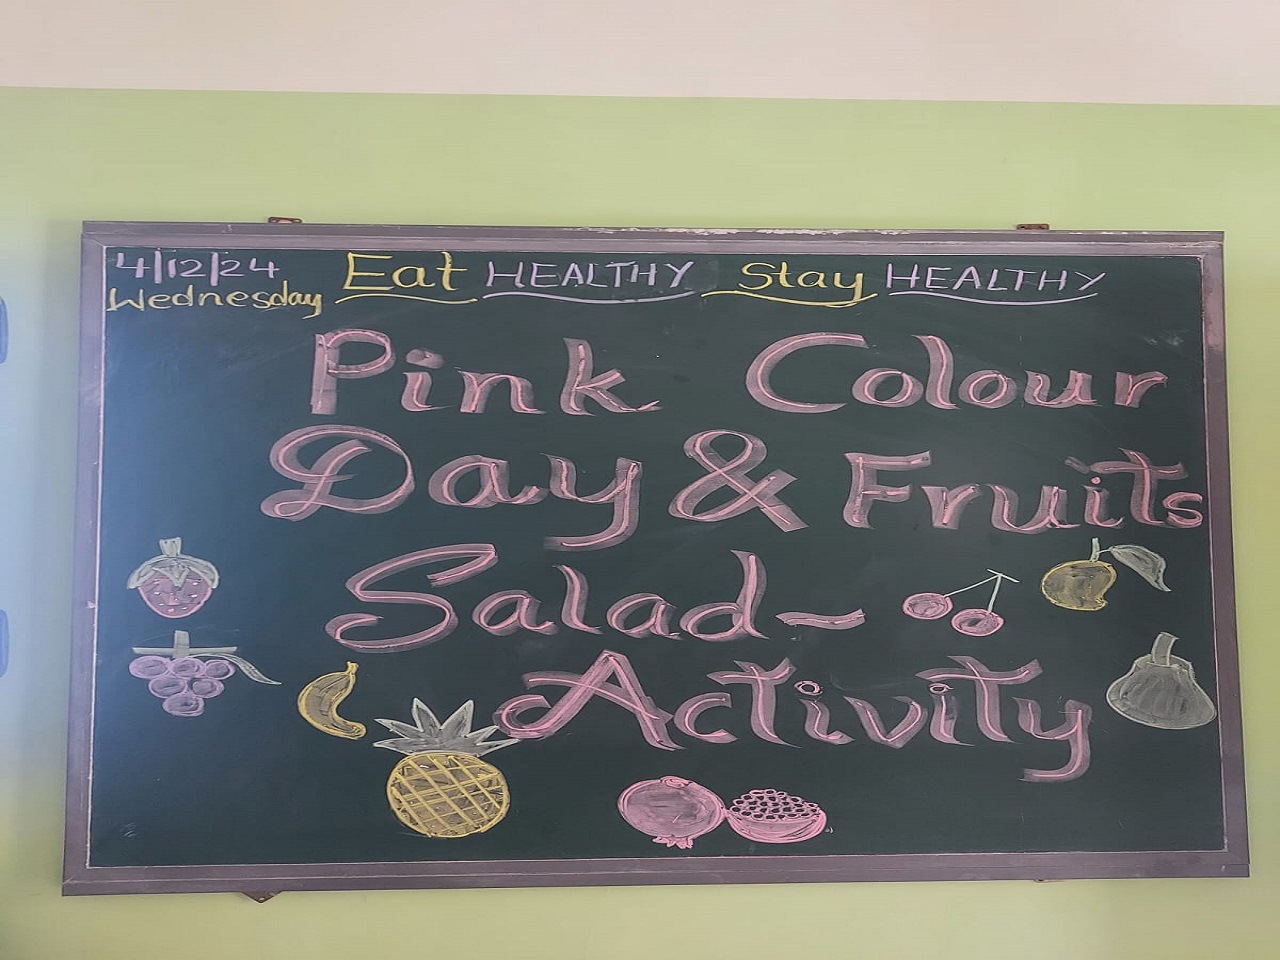 4/12/24 Eat HEALTHY Stay HEALTHY
Wednesday
Pink Colour
Day & Fruits
Salad ~
Activity